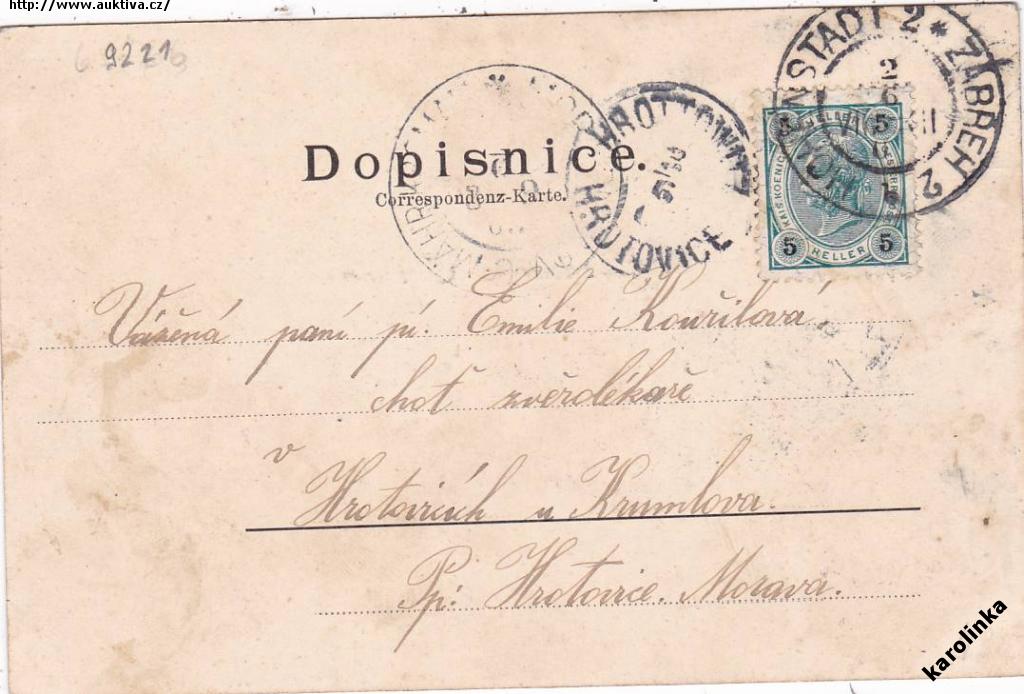 http://www.auktiva.cz/
9221
Dopisnice.
Correspondenz-Karte.
HROTTOWITZ
HROTOVICE
NSTADT 2 * ZÁBŘEH 2
5 HELLER 5
KAIS KOENIGL
5 HELLER 5
Vážená paní pí. Emilie Kouřilová
choť zvěrolékaře
v
Hrotovicích u Krumlova.
Pp: Hrotovice. Morava.
karolinka